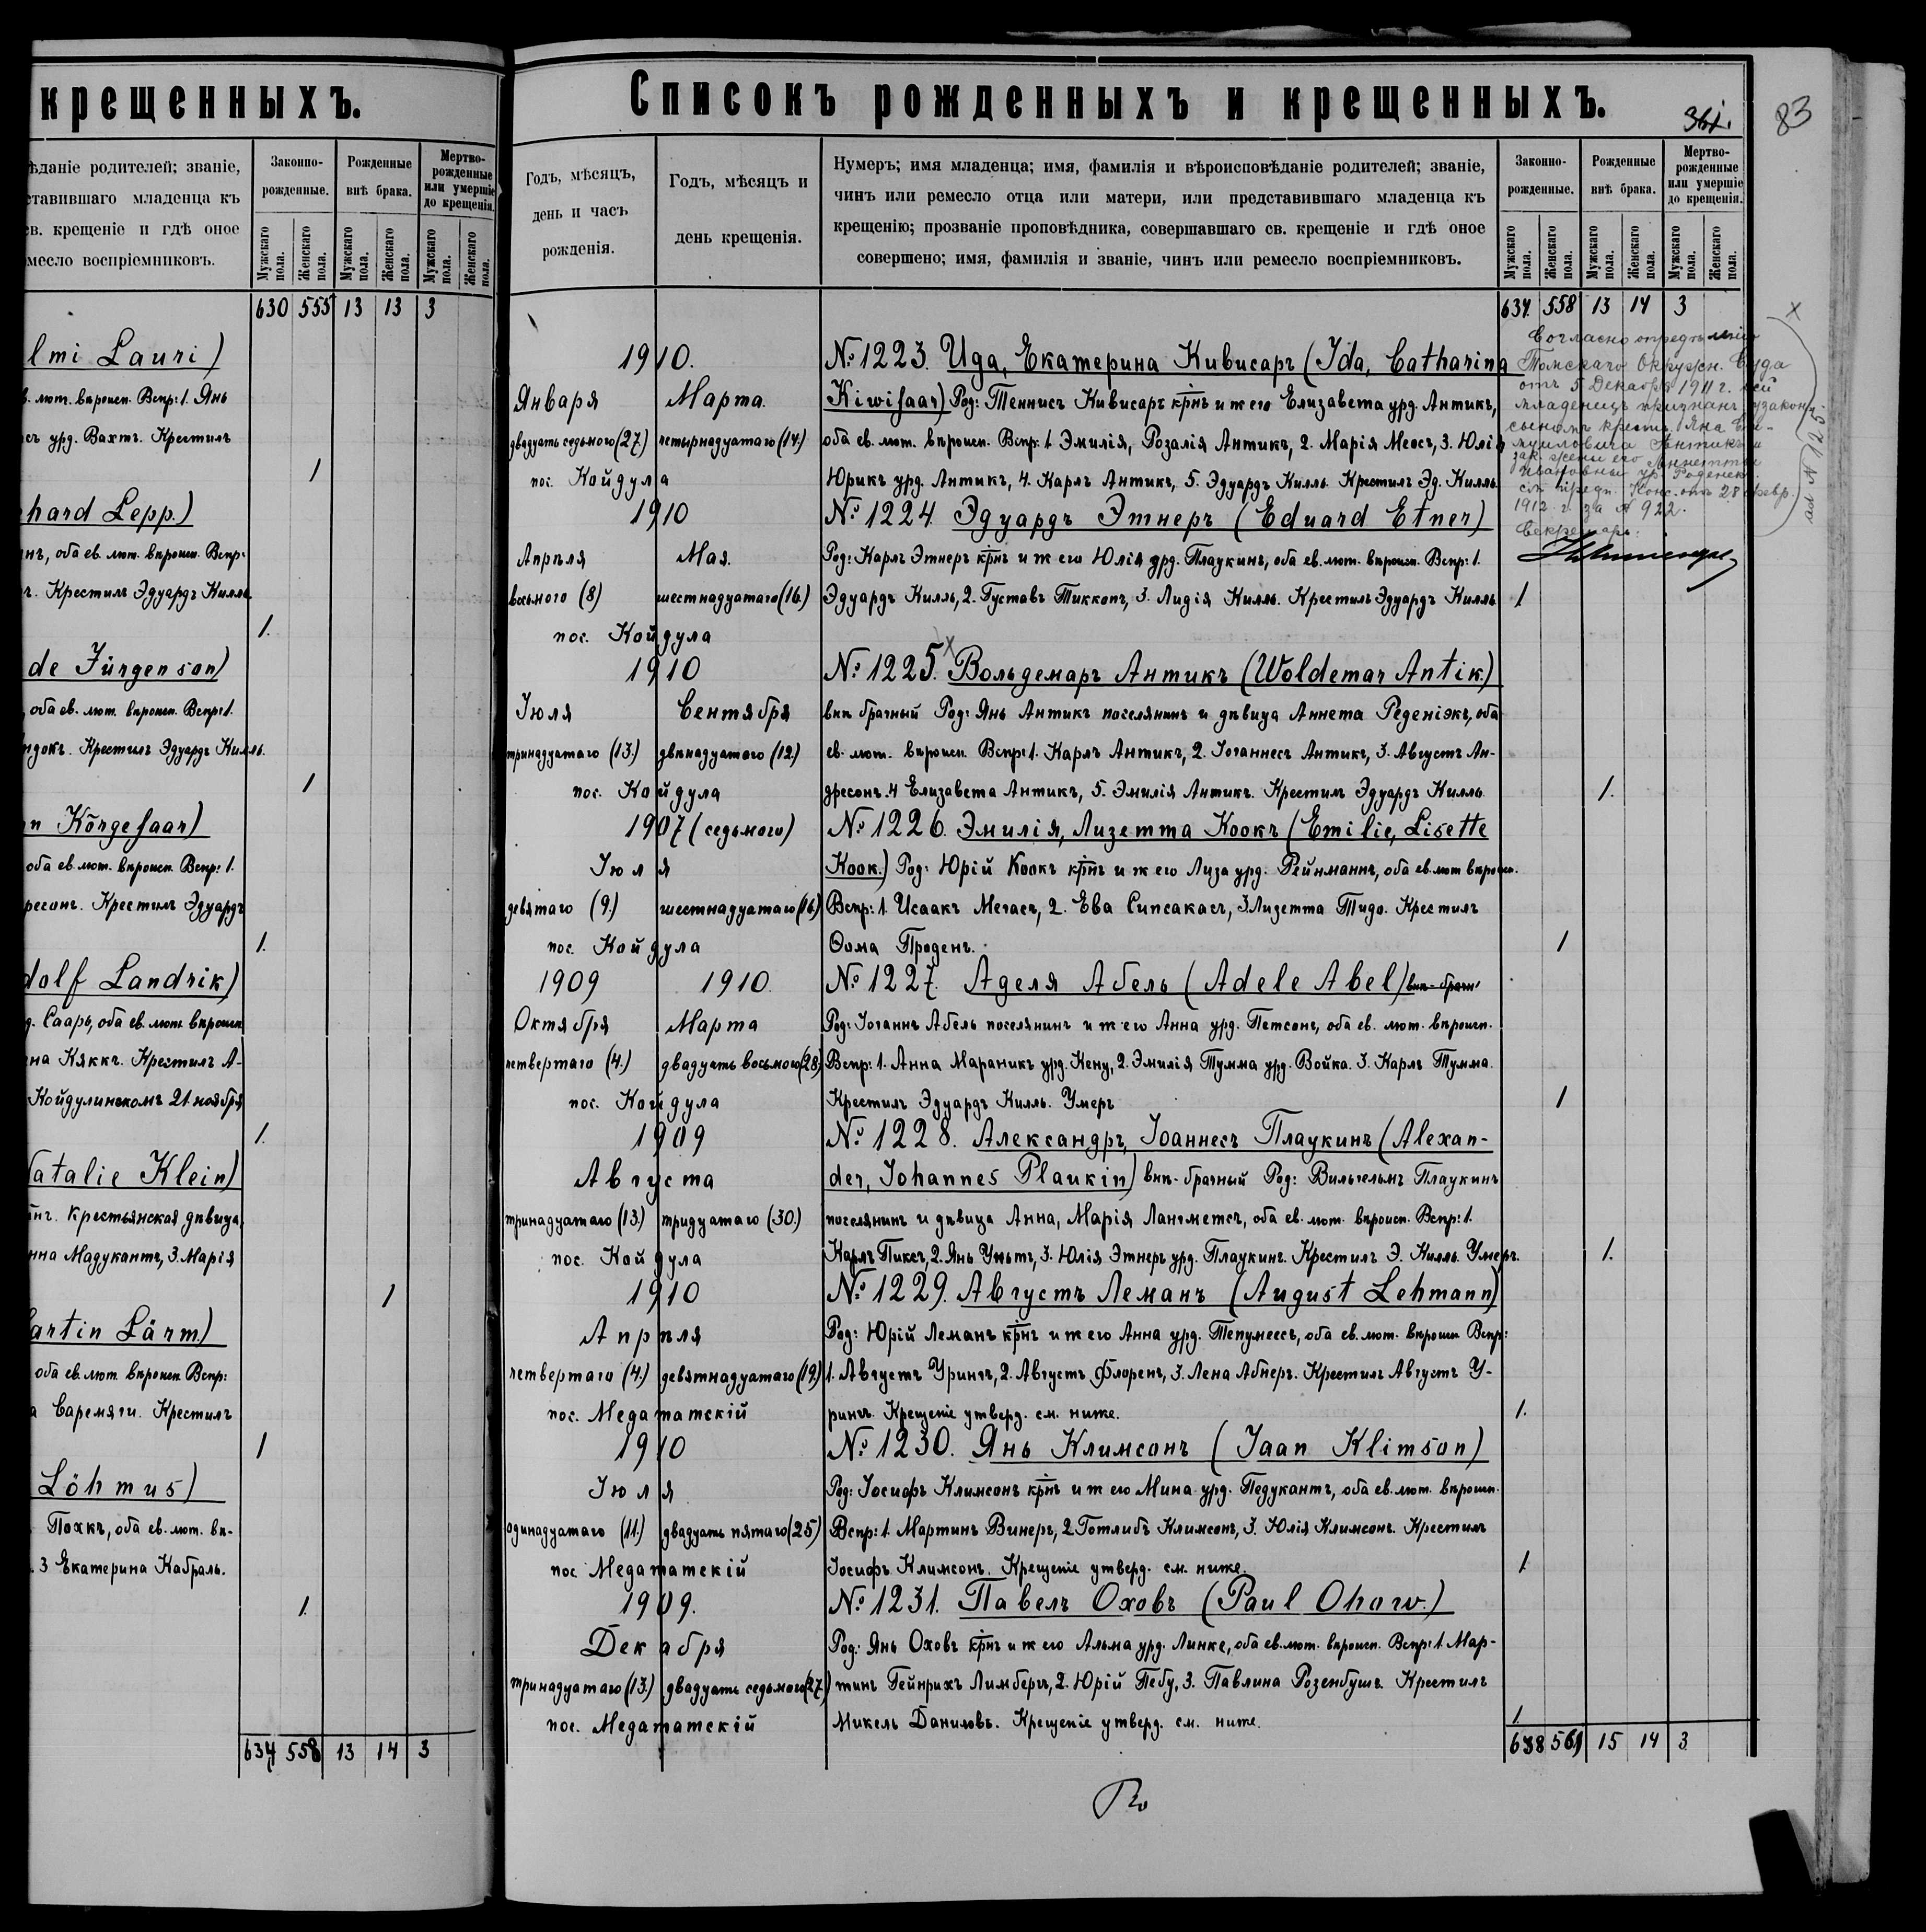 крещенныхъ.
ѣданіе родителей; званіе,
ставившаго младенца къ
св. крещеніе и гдѣ оное
месло воспріемниковъ.
Законно-
рожденные.
Рожденные
внѣ брака.
Мертво-
рожденные
или умершіе
до крещенія.
Мужскаго пола.
Женскаго пола.
Мужскаго пола.
Женскаго пола.
Мужскаго пола.
Женскаго пола.
630 555 13 13 3
lmi Lauri)
в. лют. вѣроисп. Вспр: 1. Янъ
урд. Вахтъ. Крестилъ
1
hard Lepp.)
нъ, оба ев. лют. вѣроисп. Вспр:
Крестилъ Эдуардъ Килль.
1.
de Jürgenson)
, оба ев. лют. вѣроисп. Вспр: 1.
ндокъ. Крестилъ Эдуардъ Килль.
1
n Kõrgesaar)
оба ев. лют. вѣроисп. Вспр: 1.
ресонъ. Крестилъ Эдуардъ
1.
dolf Landrik)
Сааръ, оба ев. лют. вѣроисп.
на Няккъ. Крестилъ А-
Койдулинскомъ 21 ноября
1.
Natalie Klein)
Крестьянская дѣвица
нна Мадукантъ, 3. Марія
1
artin Lärm.)
оба ев. лют. вѣроисп. Вспр:
а Саремяги. Крестилъ
1
Löhmus)
Похкъ, оба ев. лют. вѣ-
. 3 Екатерина Кабраль.
1.
634 558 13 14 3
Списокъ рожденныхъ и крещенныхъ.
361.
83
Годъ, мѣсяцъ,
день и часъ
рожденія.
Годъ, мѣсяцъ и
день крещенія.
Нумеръ; имя младенца; имя, фамилія и вѣроисповѣданіе родителей; званіе,
чинъ или ремесло отца или матери, или представившаго младенца къ
крещенію; прозваніе проповѣдника, совершавшаго св. крещеніе и гдѣ оное
совершено; имя, фамилія и званіе, чинъ или ремесло воспріемниковъ.
Законно-
рожденные.
Рожденные
внѣ брака.
Мертво-
рожденные
или умершіе
до крещенія.
Мужскаго пола.
Женскаго пола.
Мужскаго пола.
Женскаго пола.
Мужскаго пола.
Женскаго пола.
634. 558 13 14 3
1910. № 1223. Ида, Екатерина Кивисаръ (Ida, Catharina
Января Марта. Kiwisaar) Род: Теннисъ Кивисаръ крнъ и ж его Елизавета урд. Антикъ,
двадцать седьмого (27.) четырнадцатого (14.) оба ев. лют. вѣроисп. Вспр: 1 Эмилія, Розалія Антикъ, 2. Марія Меосъ, 3. Юлія
пос. Койдула Юрикъ урд. Антикъ, 4. Карлъ Антикъ, 5. Эдуардъ Килль. Крестилъ Эд. Килль.
1910 № 1224. Эдуардъ Этнеръ (Eduard Etner)
Апрѣля Мая. Род: Карлъ Этнеръ крнъ и ж его Юлія урд. Плаукинъ, оба ев. лют. вѣроисп. Вспр: 1.
восьмого (8) шестнадцатого (16.) Эдуардъ Килль, 2. Густавъ Тикконъ, 3. Лидія Килль. Крестилъ Эдуардъ Килль 1
пос. Койдула
1910 № 1225. Вольдемаръ Антикъ (Woldemar Antik.)
Іюля Сентября внѣ брачный Род: Янъ Антикъ поселянинъ и дѣвица Аннета Реденіэкъ, оба
тринадцатого (13.) двѣнадцатого (12.) ев. лют. вѣроисп. Вспр: 1. Карлъ Антикъ, 2. Іоганнесъ Антикъ, 3. Августъ Ан-
пос. Койдула дресонъ. 4 Елизавета Антикъ, 5. Эмилія Антикъ. Крестилъ Эдуардъ Килль. 1.
1907 (седьмого) № 1226. Эмилія, Лизетта Коокъ (Emilie, Lisette
Іюля Kook.) Род: Юрій Коокъ крнъ и ж его Лиза урд. Рейнманнъ, оба ев. лют вѣроисп.
девятаго (9.) шестнадцатого (16.) Вспр: 1. Исаакъ Мегасъ, 2. Ева Сипсакасъ, 3. Лизетта Тидо. Крестилъ
пос. Койдула Ѳома Проденъ. 1
1909 1910. № 1227. Аделя Абель (Adele Abel) внѣ-брачн
Октября Марта Род: Іоганнъ Абель поселянинъ и ж его Анна урд. Петсонъ, оба ев. лют. вѣроисп.
четвертаго (4.) двадцать восьмого (28) Вспр: 1. Анна Мараникъ урд. Кену, 2. Эмилія Тумма урд. Войка. 3. Карлъ Тумма.
пос. Койдула Крестилъ Эдуардъ Килль. Умеръ 1
1909 № 1228. Александръ, Іоаннесъ Плаукинъ (Alexan-
Августа der, Johannes Plaukin) внѣ-брачный Род: Вильгельмъ Плаукинъ
тринадцатаго (13.) тридцатаго (30.) поселянинъ и дѣвица Анна, Марія Лангметсъ, оба ев. лют. вѣроисп. Вспр: 1.
пос. Койдула Карлъ Пиксъ, 2. Янъ Унтъ, 3. Юлія Этнеръ урд. Плаукинъ. Крестилъ Э. Килль. Умеръ. 1.
1910 № 1229. Августъ Леманъ (August Lehmann)
Апрѣля Род: Юрій Леманъ крнъ и ж его Анна урд. Тепумесъ, оба ев. лют. вѣроисп Вспр:
четвертаго (4.) девятнадцатаго (19.) 1. Августъ Урингъ, 2. Августъ Флоренъ, 3. Лена Абнеръ. Крестилъ Августъ У-
пос. Медататскій рингъ. Крещеніе утверд. см. ниже. 1.
1910 № 1230. Янъ Климсонъ (Jaan Klimson)
Іюля Род: Іосифъ Климсонъ крнъ и ж его Мина урд. Педукантъ, оба ев. лют. вѣроисп.
одинадцатаго (11.) двадцать пятаго (25) Вспр: 1. Мартинъ Винеръ, 2. Готлибъ Климсонъ, 3. Юлія Климсонъ. Крестилъ
пос Медататскій Іосифъ Климсонъ. Крещеніе утверд. см. ниже. 1.
1909. № 1231. Павелъ Оховъ (Paul Ohow.)
Декабря Род: Янъ Оховъ крнъ и ж его Альма урд. Линке, оба ев. лют. вѣроисп. Вспр: 1. Мар-
тринадцатаго (13.) двадцать седьмого (27.) тинъ Гейнрихъ Лимбергъ, 2. Юрій Пебу, 3. Павлина Розенбушъ. Крестилъ
пос. Медатотскій Микель Даниловъ. Крещеніе утверд. см. ниже. 1.
638 561 15 14 3.
Согласно опредѣленію
Томскаго Окружн. Суда
отъ 5 Декабря 1911 г. сей
младенецъ признанъ узакон.
сыномъ крест. Яна
Антика и
зак. жены его Аннетты
Ивановны ур. Реденіэкъ.
Конс. отъ 28 февр.
1912 г. за № 922.
Секретарь:
№ 125.